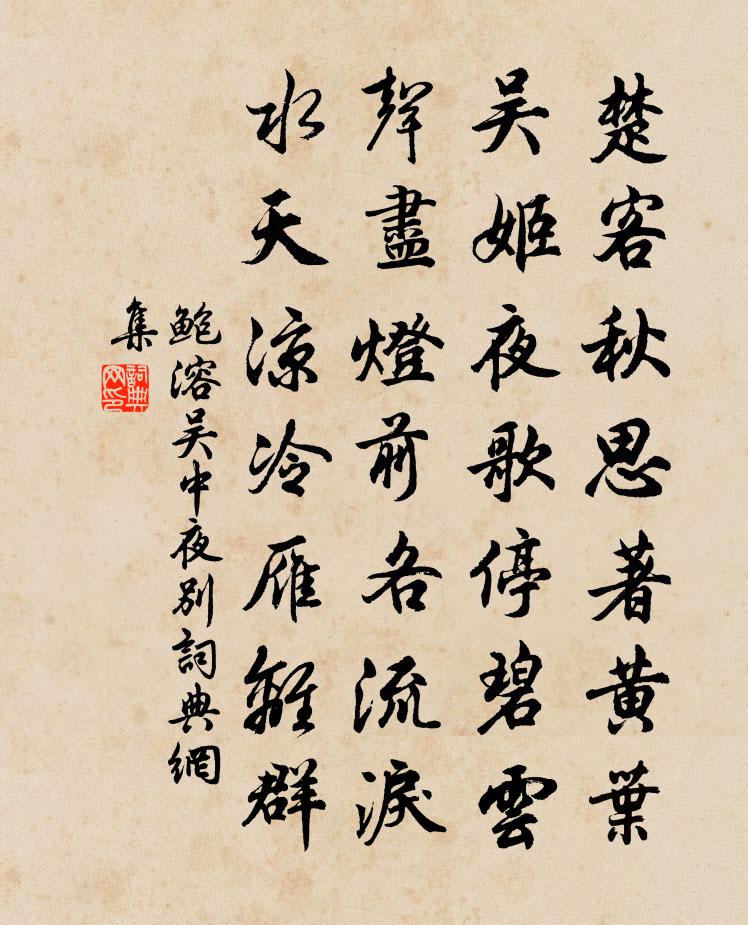 楚客秋思著黃葉
吳姬夜歌停碧雲
聲盡燈前各流淚
水天涼冷雁離群
鮑溶吳中夜別詞典網
集
詞典
网印